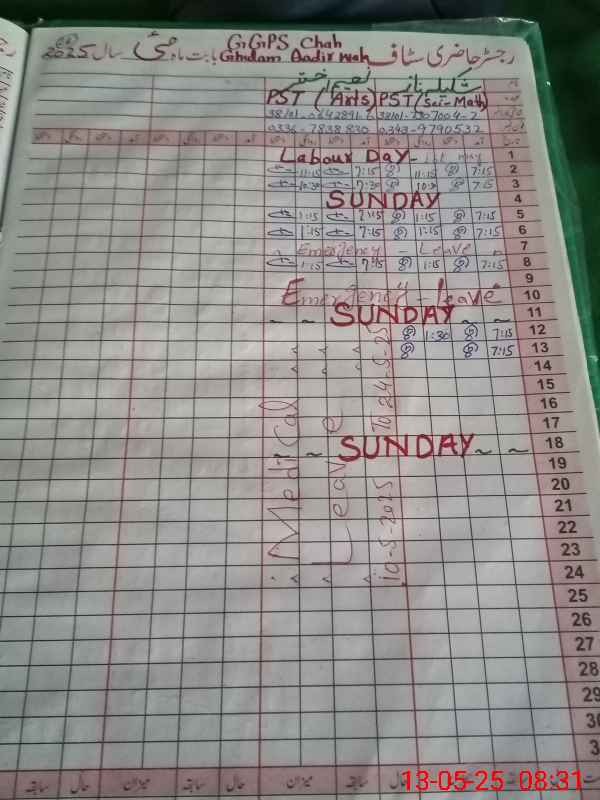 رجسٹر حاضری سٹاف GGPS Chah Ghulam Aadir wah بابت ماہ مئی سال 2025
شکیلہ ناز نعیم اختر
PST (Arts) PST (Sci-Math)
0336-7838830 0343-9790532
Labour Day - 1st may 1
11:15 7:15 11:15 7:15 2
10:30 7:30 10:30 7:15 3
SUNDAY 4
1:15 7:15 1:15 7:15 5
1:15 7:15 1:15 7:15 6
Emergency - Leave 7
1:15 7:15 1:15 7:15 8
9
Emergency - Leave 10
~ ~ SUNDAY ~ ~ 11
1:30 7:15 12
7:15 13
14
15
16
17
~ ~ SUNDAY ~ ~ 18
19
20
21
22
23
24
25
26
27
28
29
30
3
Medical
Leave
10-5-2025 To 24-5-25
سابقہ حال میزان سابقہ حال میزان سابقہ حال
13-05-25 08:31